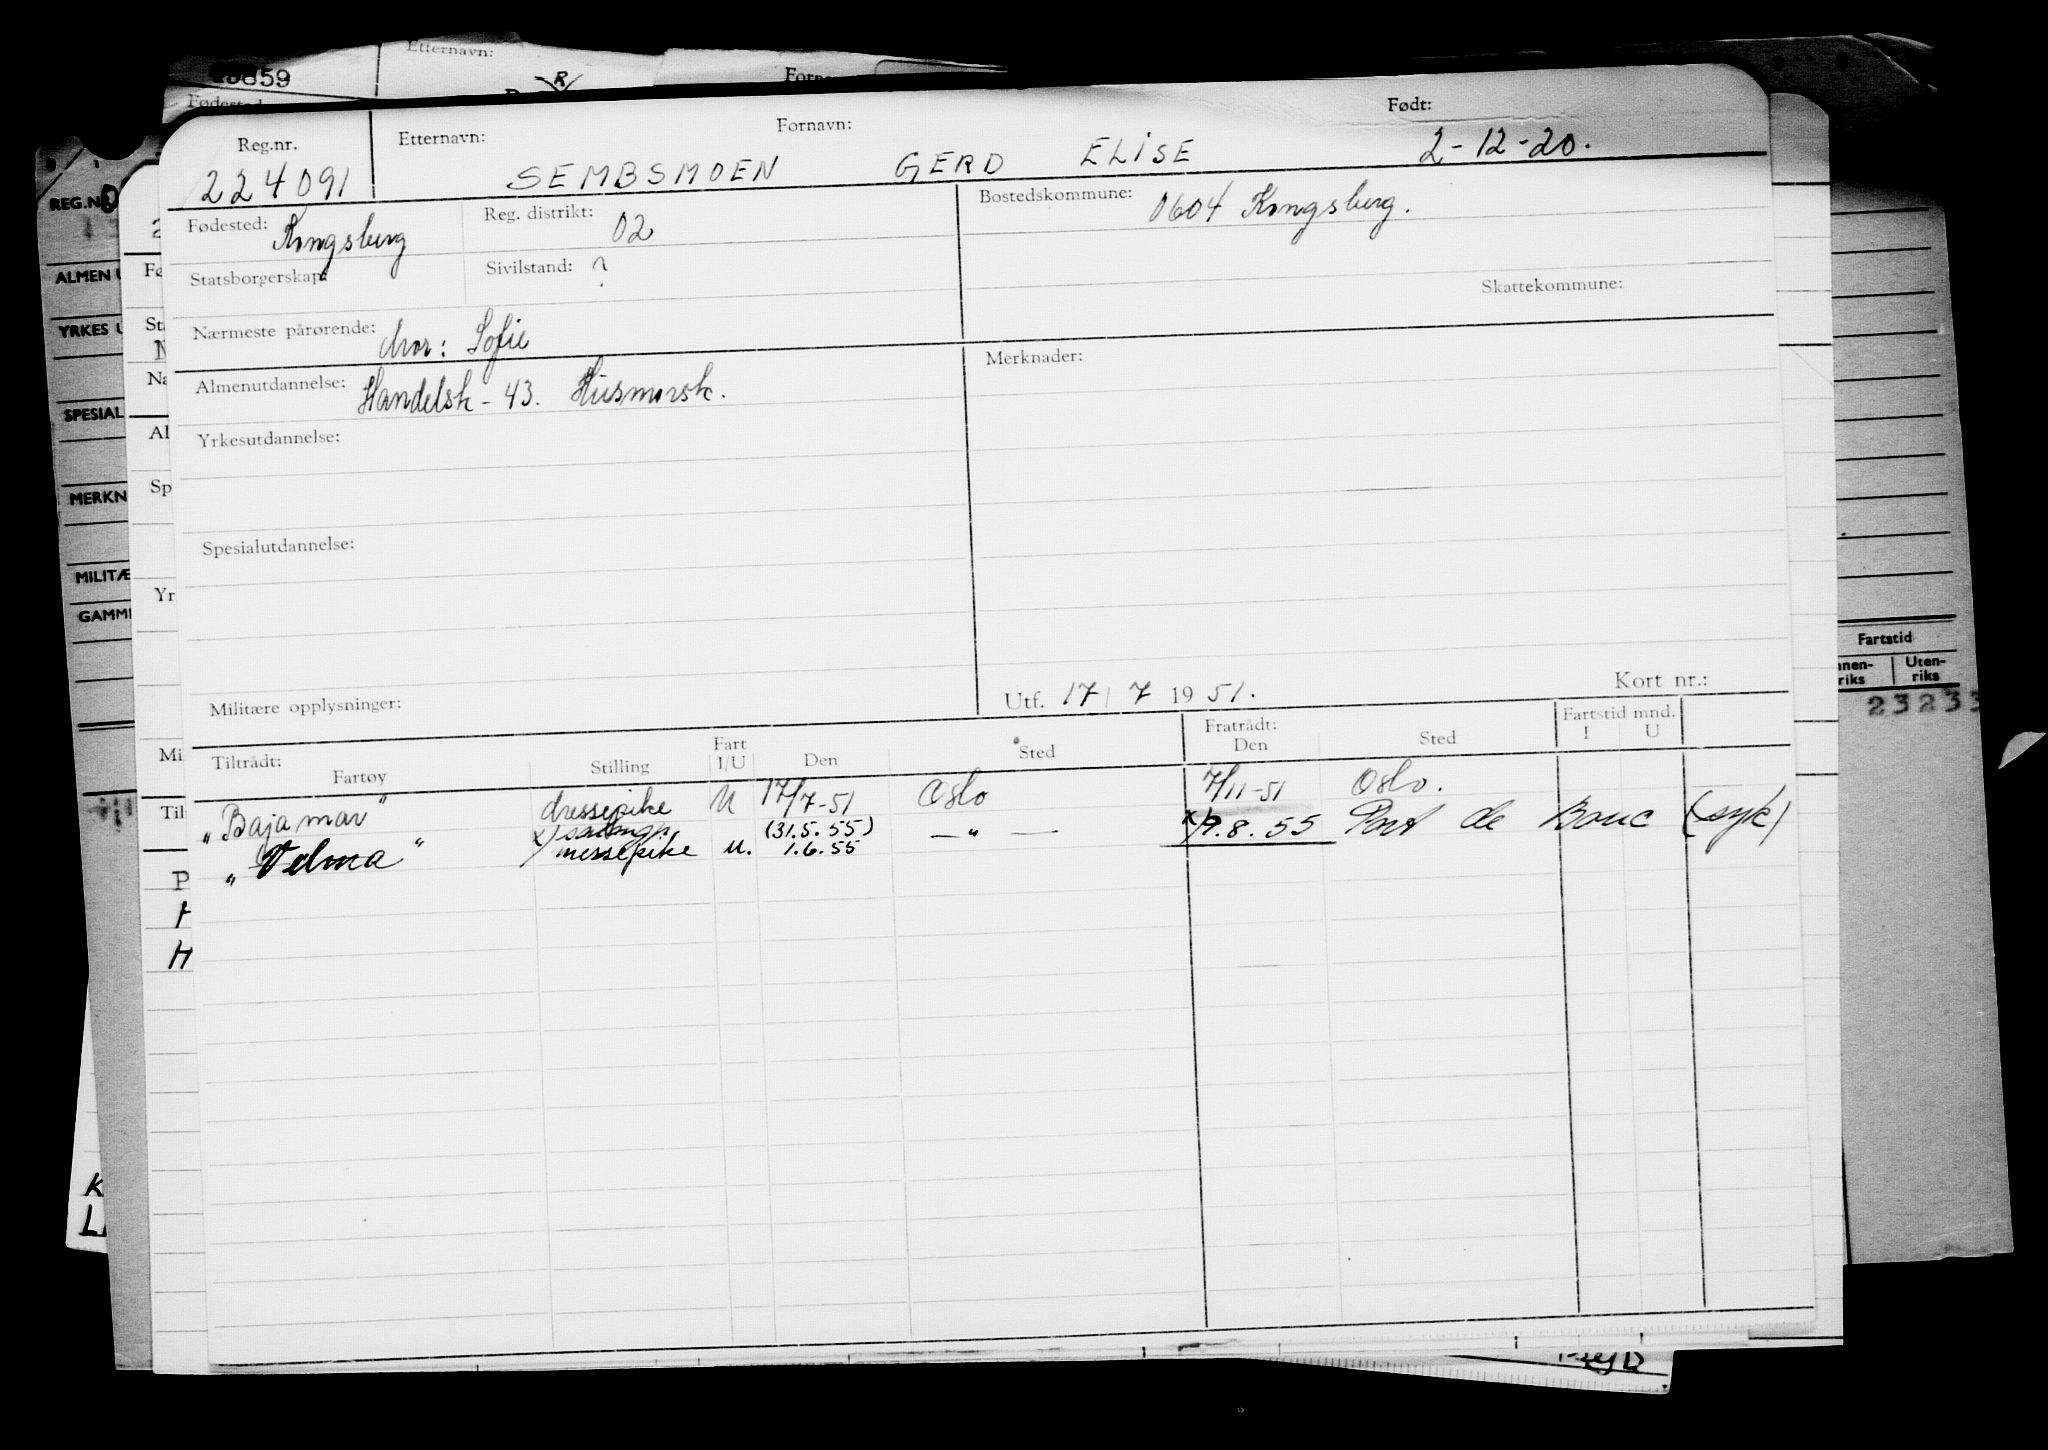 Etternavn:
R
REG.N
ALMEN U
YRKES U
SPESIAL
MERKN
MILITÆ
GAMM
Reg.nr. Etternavn: Fornavn: Født:
224091 SEMBSMOEN GERD ELISE 2-12-20.
Fødested: Kongsberg Reg. distrikt: 02 Bostedskommune: 0604 Kongsberg.
Statsborgerskap: Sivilstand: ? Skattekommune:
Nærmeste pårørende: Mor: Sofie
Almenutdannelse: Handelsk - 43. Husmorsk. Merknader:
Yrkesutdannelse:
Spesialutdannelse:
Militære opplysninger: Utf. 17/7 1951. Kort nr.:
Tiltrådt: Fratrådt: Fartstid mnd.
Fartøy Stilling Fart I/U Den Sted Den Sted I U
"Bajamar" dressepike U 17/7-51 Oslo 7/11-51 Oslo.
"Velma" x) messepike U. (31.5.55) 1.6.55 — " — x) 9.8.55 Port de Bouc (syk)
Fartstid
Uten-
riks riks
23233